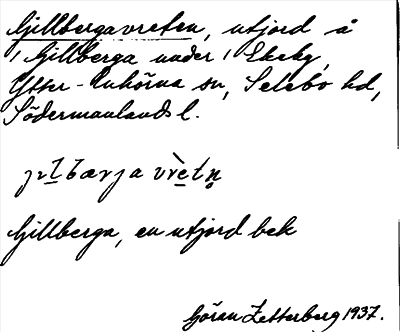 Gillbergavreten, utjord å
1 Gillberga under 1 Ekeby,
Ytter-Enhörna sn, Selebo hd,
Södermanlands l.
jılbærja vrètn̥
Gillberga, en utjord bek
Göran Zetterberg 1937.